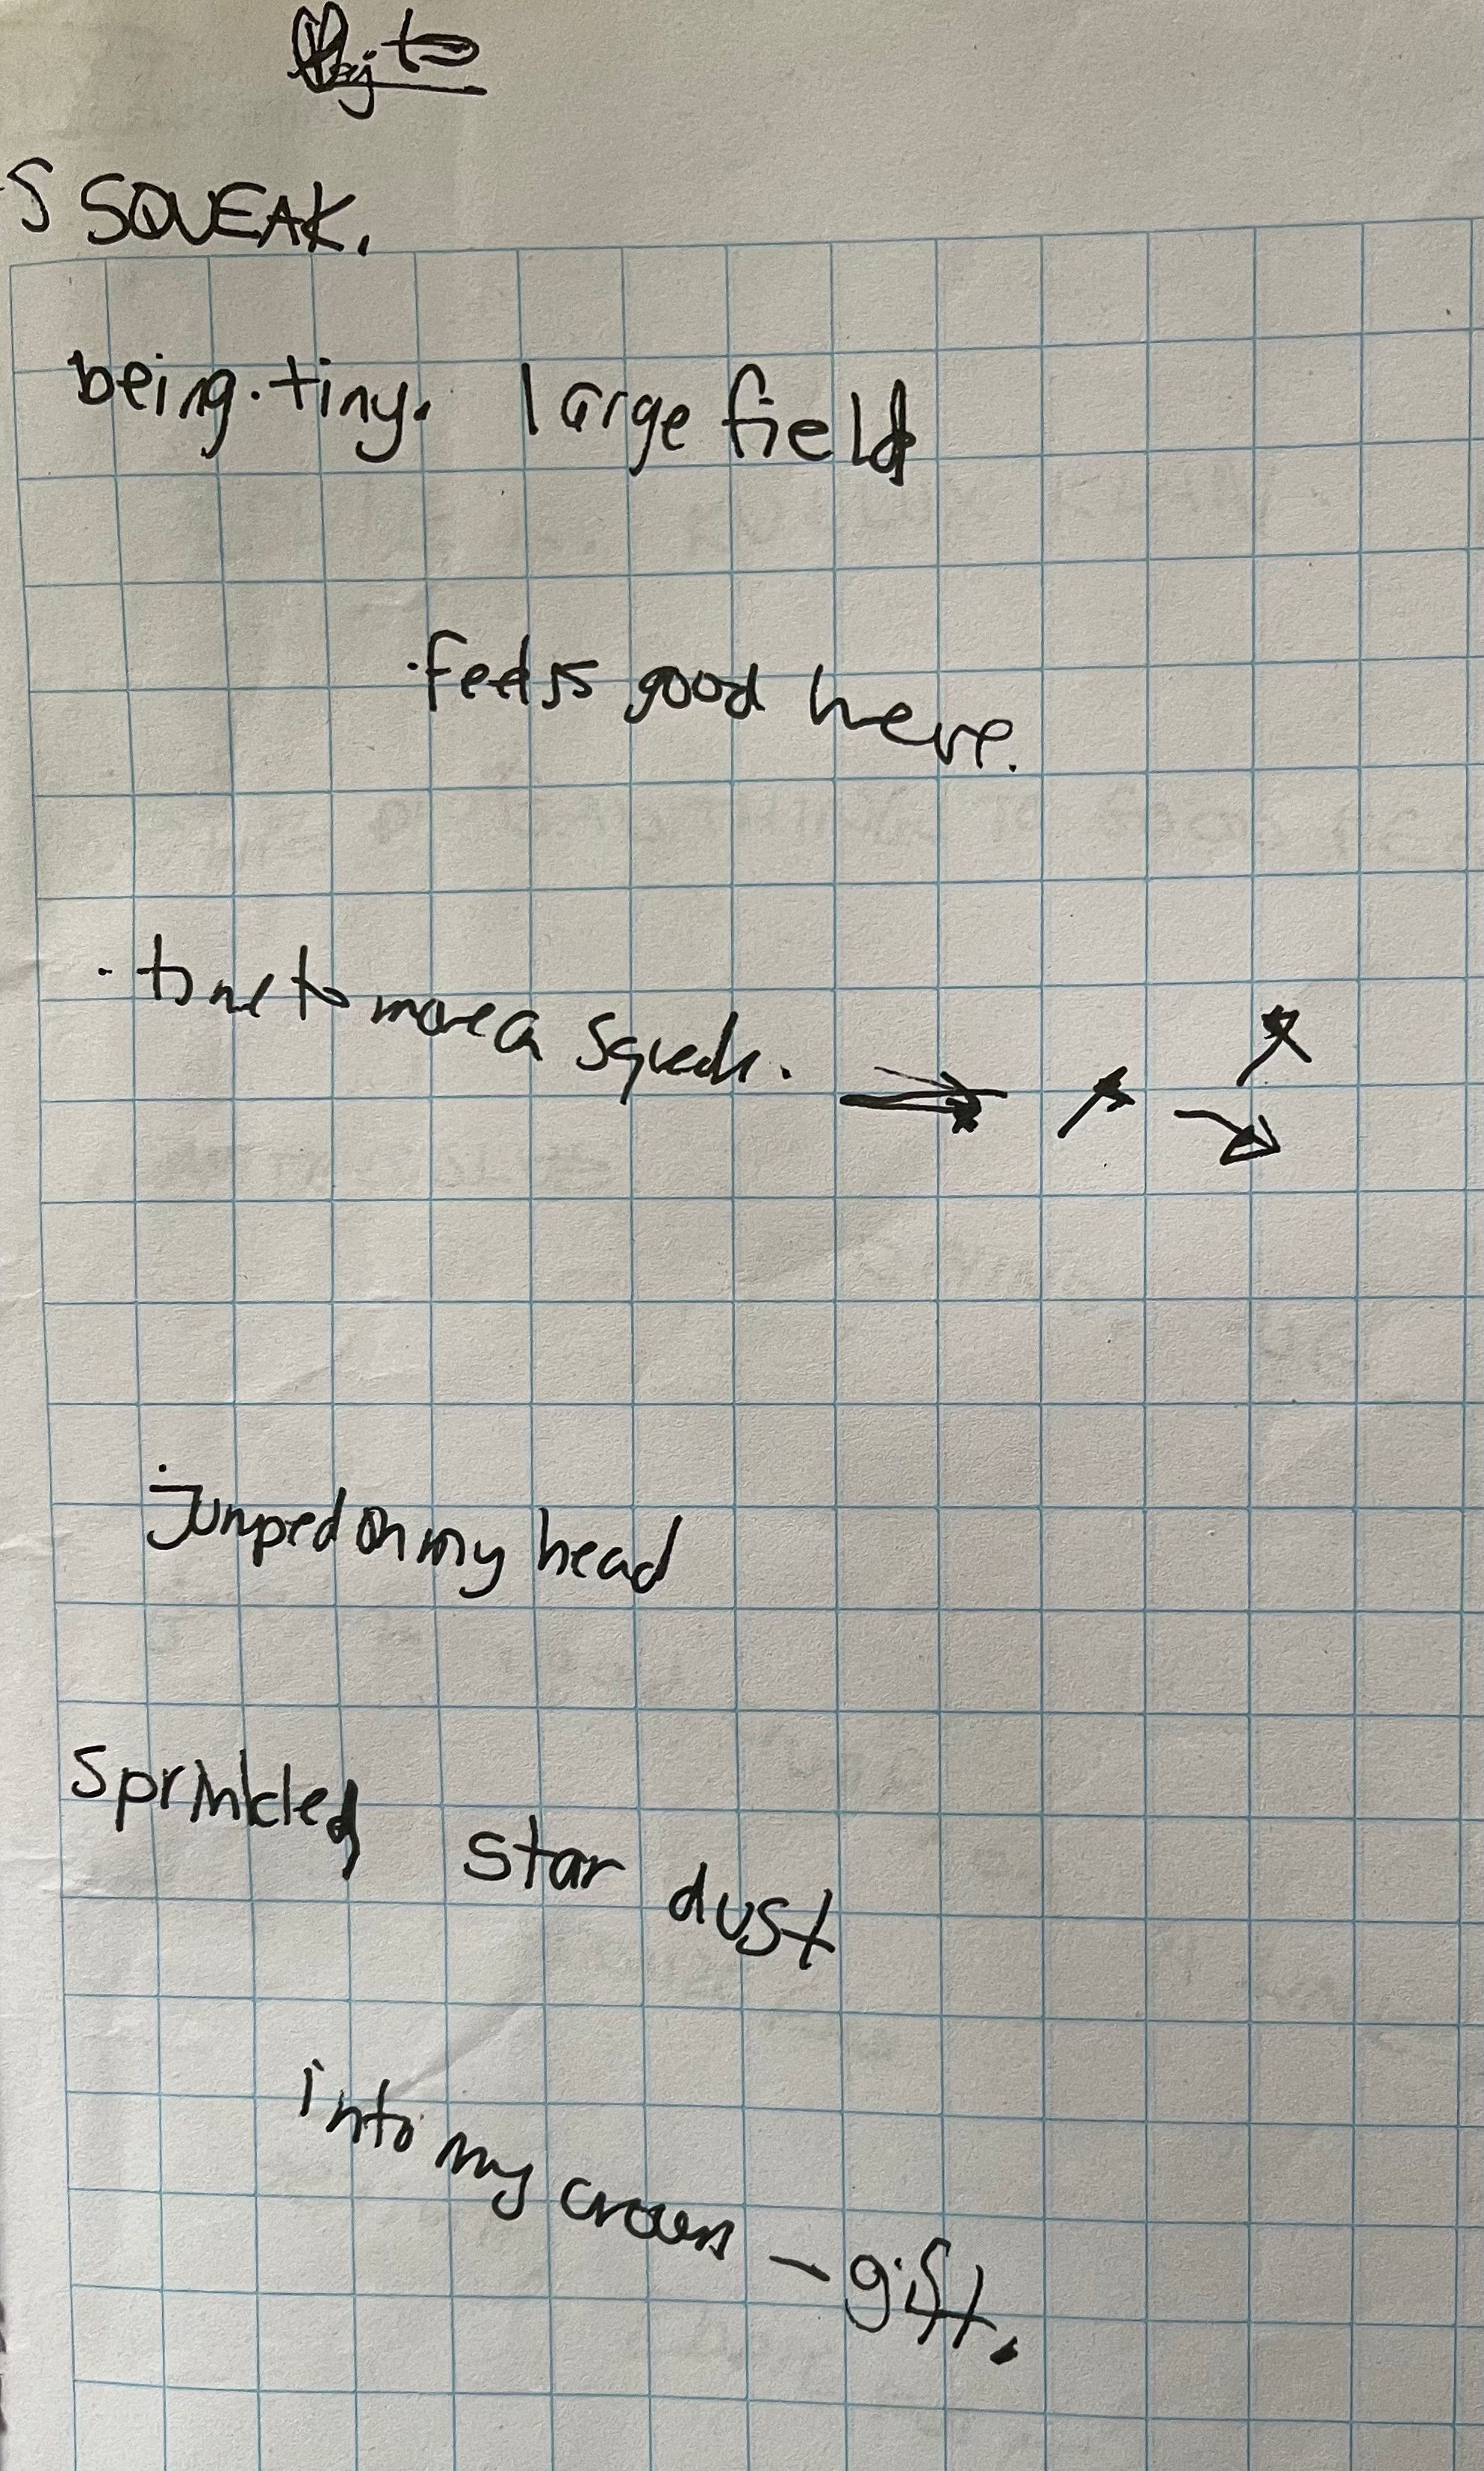 S SQUEAK.
being. tiny. large field
· feels good here.
· time to move a squeak.
jumped on my head
sprinkled star dust
into my crown - gift.